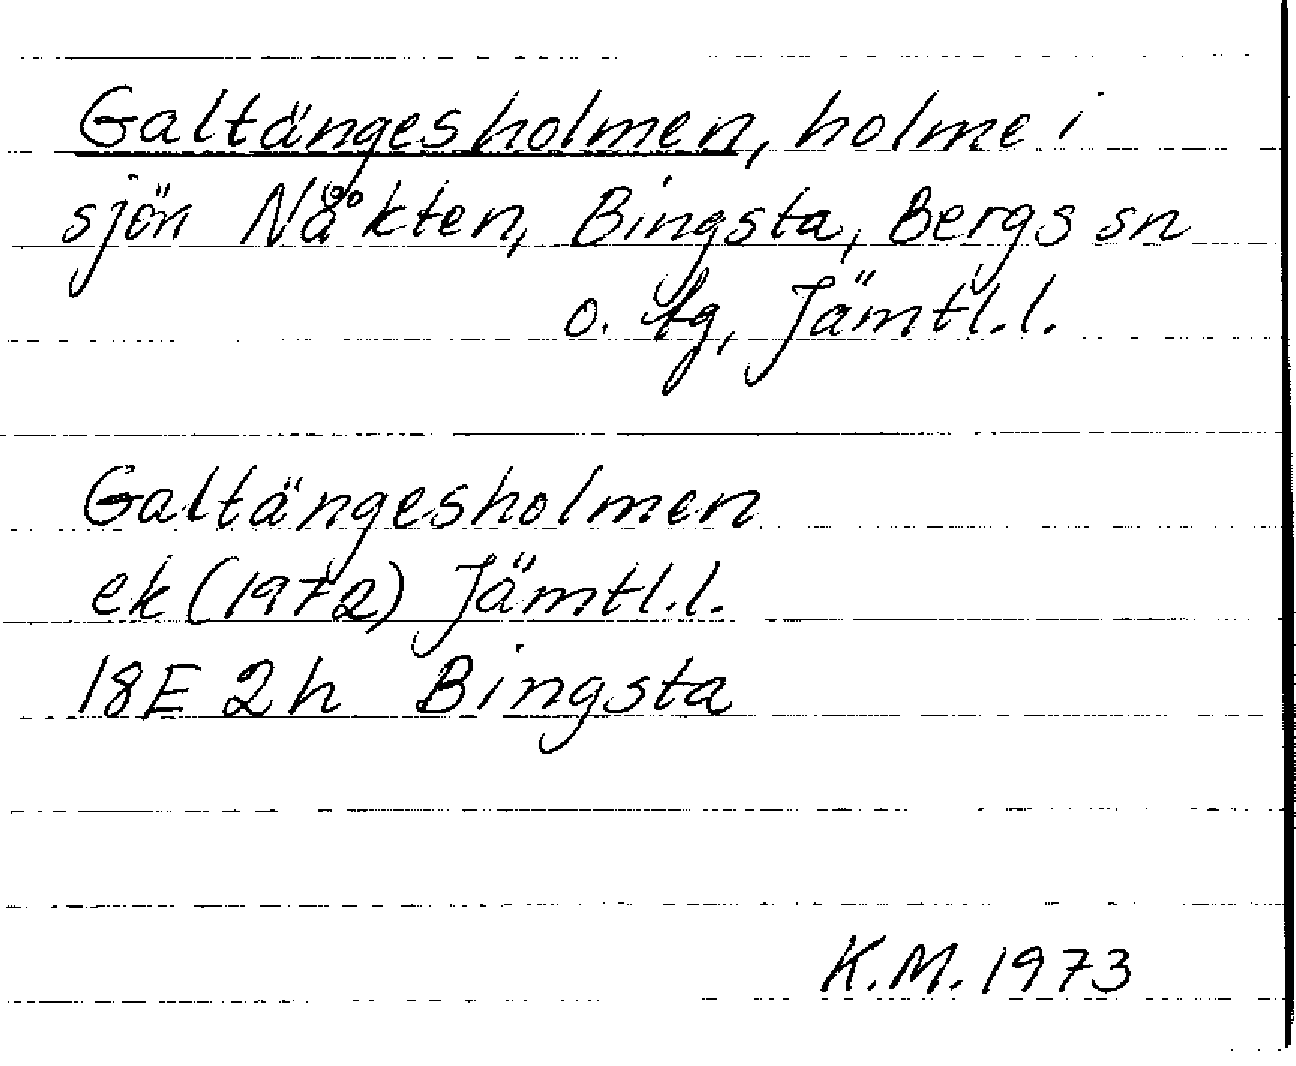 Galtängesholmen, holme i
sjön Nåkten, Bingsta, Bergs sn
o. tg, Jämtl.l.
Galtängesholmen
ek (1972) Jämtl.l.
18E 2h Bingsta
K.M. 1973